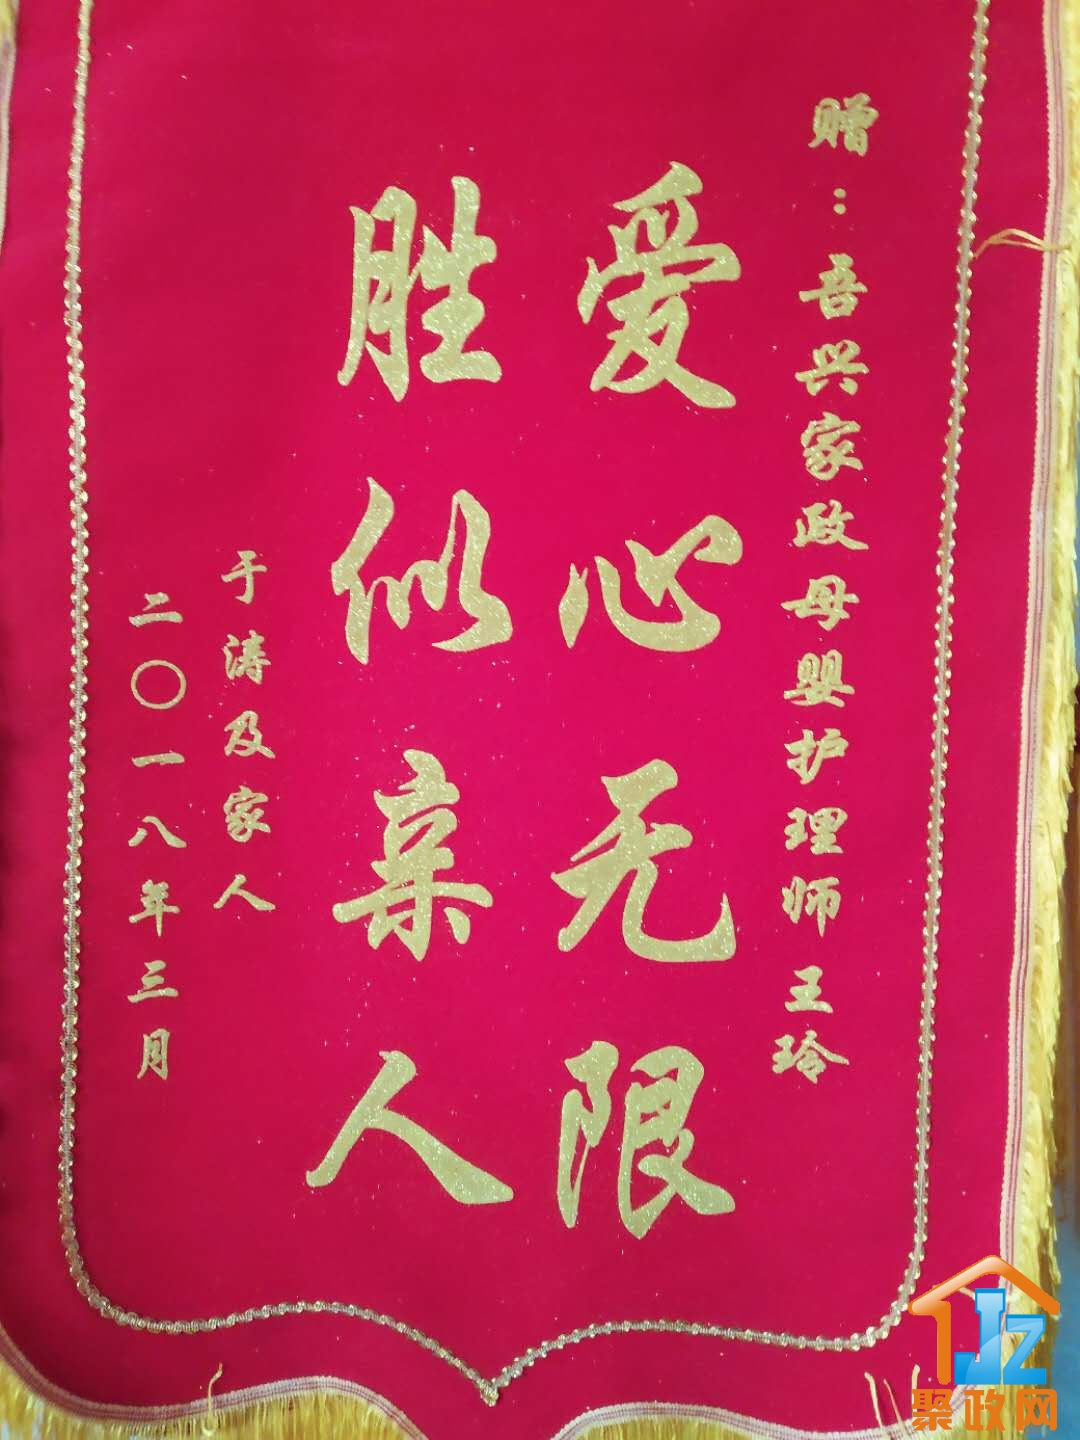 赠：吾兴家政母婴护理师王玲
爱心无限
胜似亲人
于涛及家人
二〇一八年三月
JZ
聚政网